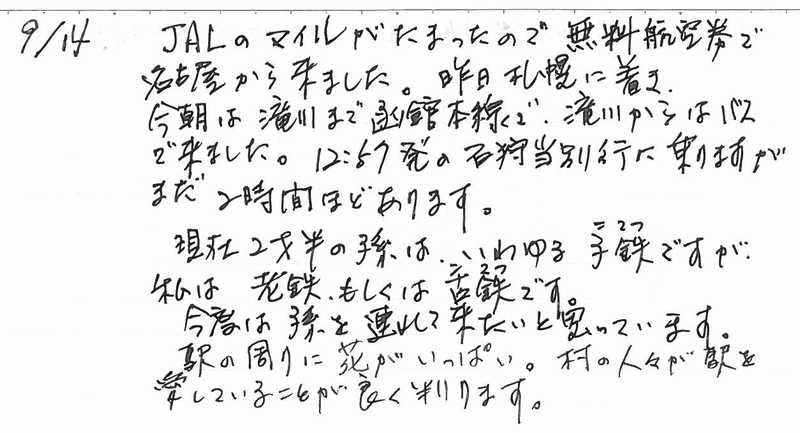 9/14 JALのマイルがたまったので無料航空券で
名古屋から来ました。昨日札幌に着き、
今朝は滝川まで函館本線で、滝川からはバス
で来ました。12:57発の石狩当別行に乗りますが
まだ2時間ほどあります。
現在2才半の孫は、いわゆる子鉄ですが、
コテツ
私は老鉄、もしくは苦鉄です。
コテツ
今度は孫を連れて来たいと思っています。
駅の周りに花がいっぱい。村の人々が駅を
愛していることが良く判ります。